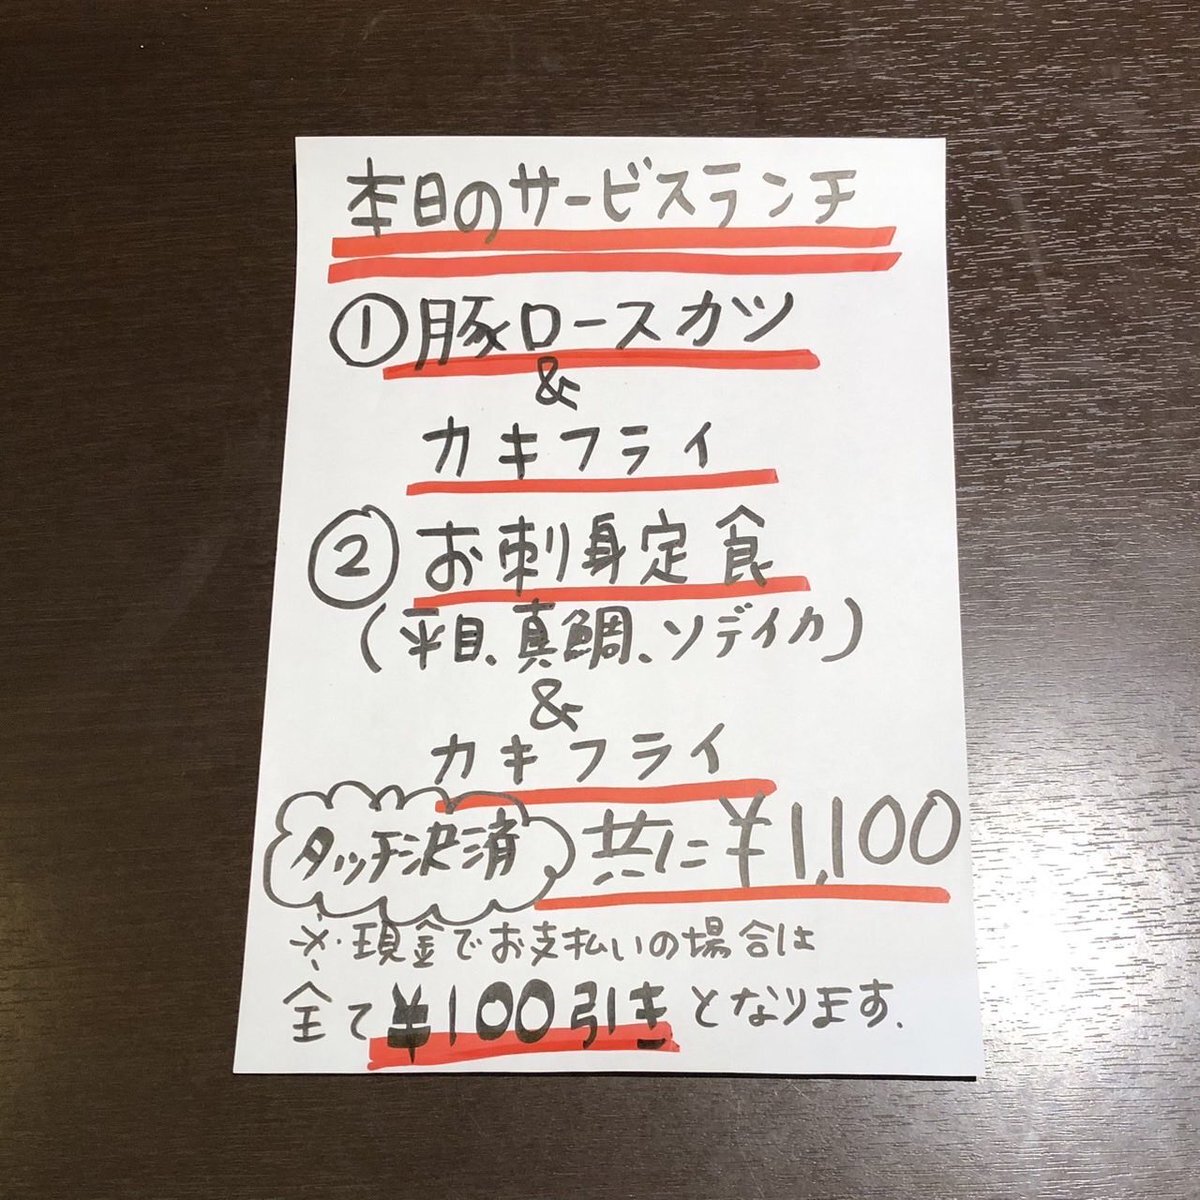 本日のサービスランチ
①豚ロースカツ
&
カキフライ
②お刺身定食
(平目、真鯛、ソデイカ)
&
カキフライ
タッチ決済 共に¥1,100
※.現金でお支払いの場合は
全て¥100引きとなります.